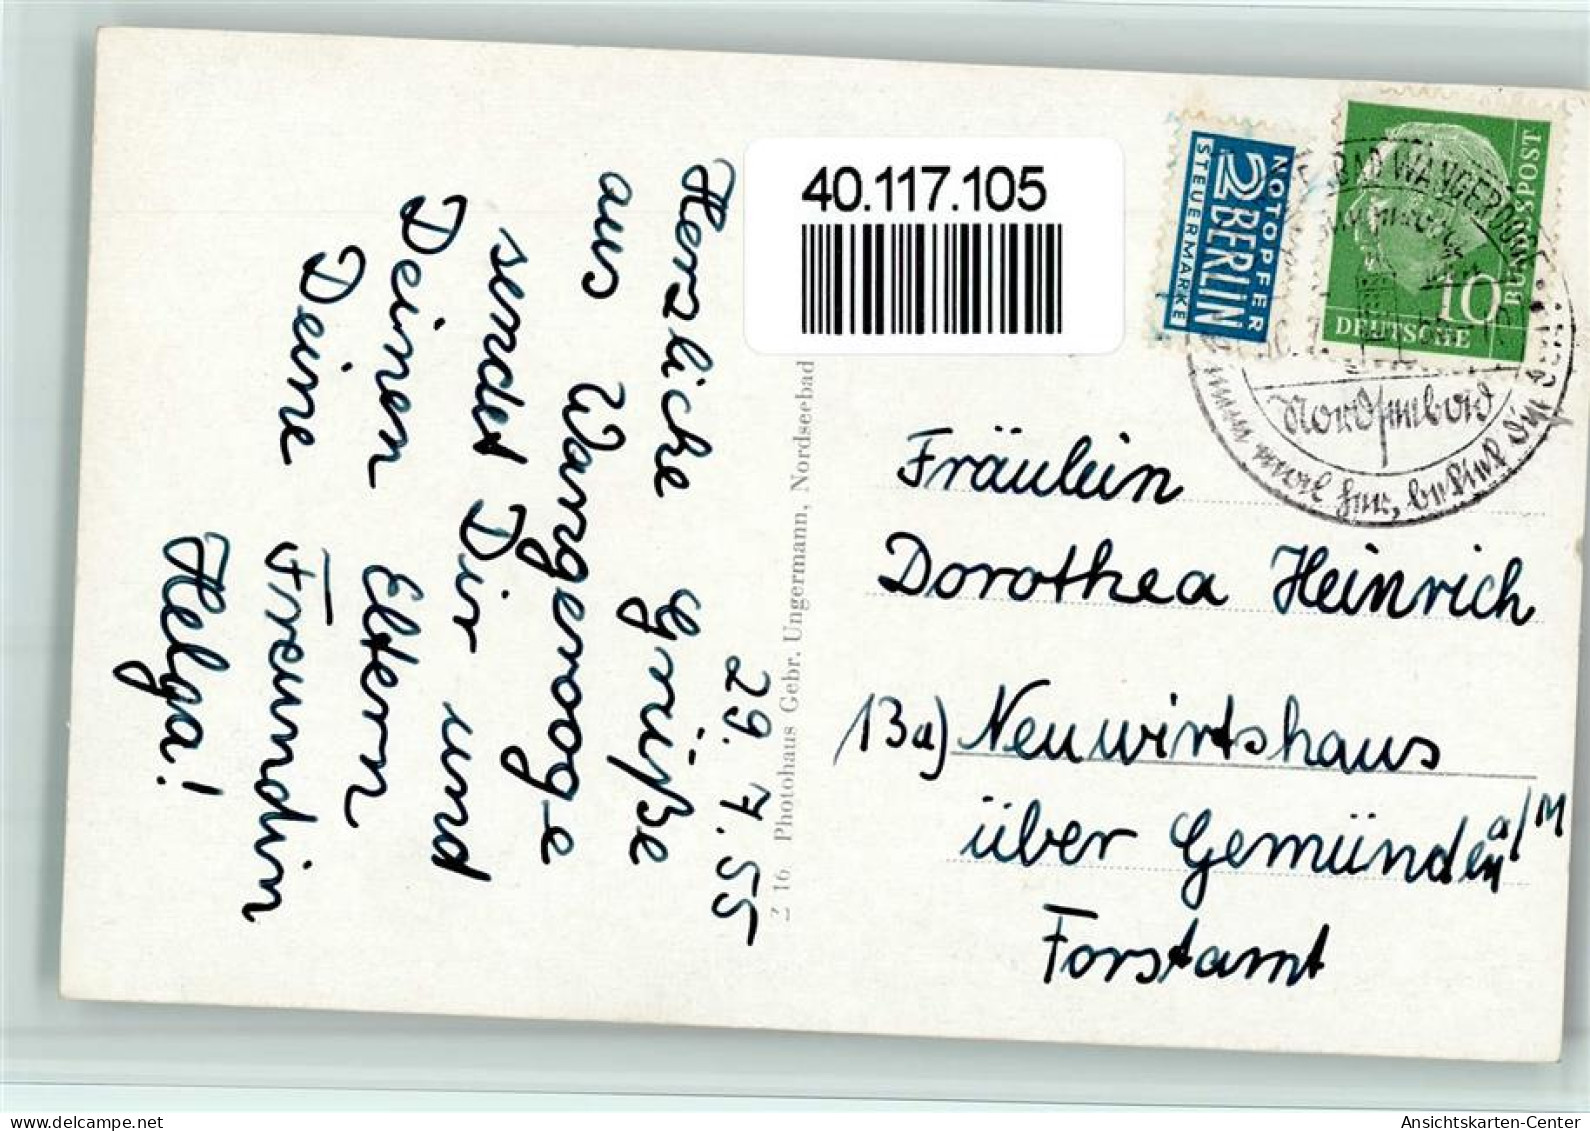 40.117.105
29. 7. 55
Herzliche Grüße
aus Wangerooge
sendet Dir und
Deinen Eltern
Deine Freundin
Helga!
Z 16 Photohaus Gebr. Ungermann, Nordseebad
NOTOPFER
2 BERLIN
STEUERMARKE
10
DEUTSCHE
BUNDESPOST
BAD WANGEROOGE
Nordseebad
Fräulein
Dorothea Heinrich
13a) Neuwirtshaus
über Gemünden a/M
Forstamt
delcampe.net
Ansichtskarten-Center